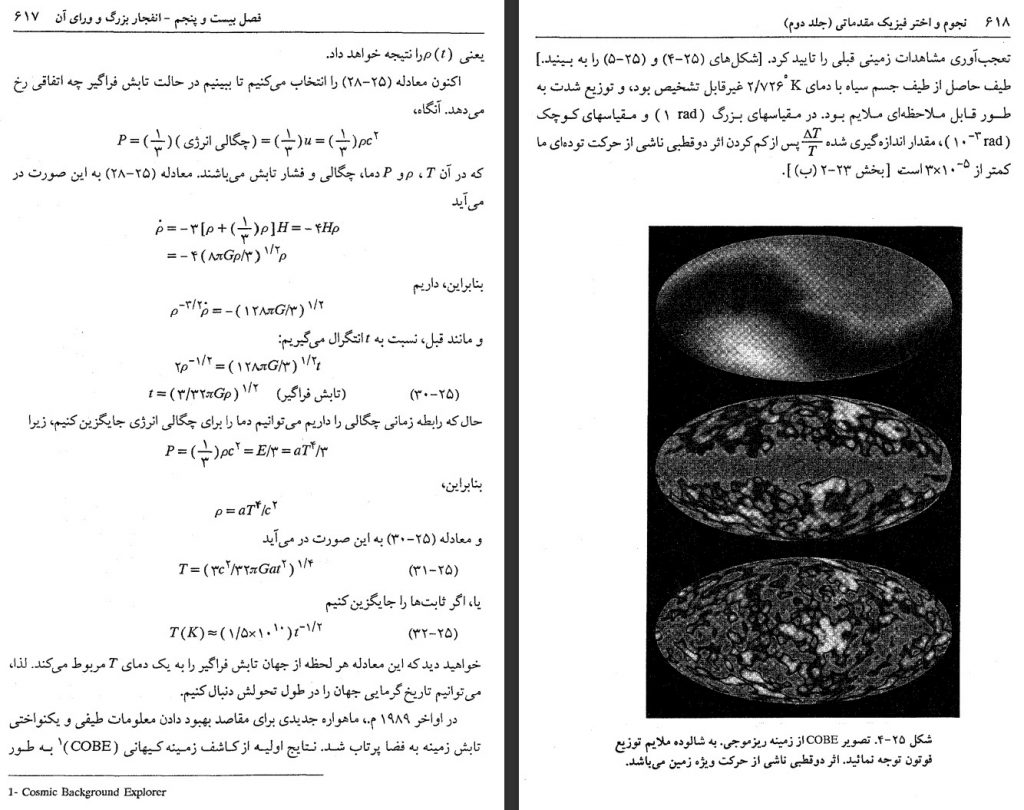 فصل بیست و پنجم - انفجار بزرگ و ورای آن ۶۱۷
یعنی ρ(t) را نتیجه خواهد داد.
اکنون معادله (۲۵-۲۸) را انتخاب می‌کنیم تا ببینیم در حالت تابش فراگیر چه اتفاقی رخ
می‌دهد. آنگاه،
P = (۱/۳) (چگالی انرژی) = (۱/۳)u = (۱/۳)ρc^۲
که در آن T ، ρ و P دما، چگالی و فشار تابش می‌باشند. معادله (۲۵-۲۸) به این صورت در
می‌آید
ρ̇ = -۳[ρ + (۱/۳)ρ]H = -۴Hρ
= -۴(۸πGρ/۳)^۱/۲ρ
بنابراین، داریم
ρ^-۳/۲ρ̇ = -(۱۲۸πG/۳)^۱/۲
و مانند قبل، نسبت به t انتگرال می‌گیریم:
۲ρ^-۱/۲ = (۱۲۸πG/۳)^۱/۲t
t = (۳/۳۲πGρ)^۱/۲ (تابش فراگیر) (۲۵-۳۰)
حال که رابطه زمانی چگالی را داریم می‌توانیم دما را برای چگالی انرژی جایگزین کنیم، زیرا
P = (۱/۳)ρc^۲ = E/۳ = aT^۴/۳
بنابراین،
ρ = aT^۴/c^۲
و معادله (۲۵-۳۰) به این صورت در می‌آید
T = (۳c^۲/۳۲πGat^۲)^۱/۴ (۲۵-۳۱)
یا، اگر ثابت‌ها را جایگزین کنیم
T(K) ≈ (۱/۵×۱۰^۱۰)t^-۱/۲ (۲۵-۳۲)
خواهید دید که این معادله هر لحظه از جهان تابش فراگیر را به یک دمای T مربوط می‌کند. لذا،
می‌توانیم تاریخ گرمایی جهان را در طول تحولش دنبال کنیم.
در اواخر ۱۹۸۹ م.، ماهواره جدیدی برای مقاصد بهبود دادن معلومات طیفی و یکنواختی
تابش زمینه به فضا پرتاب شد. نتایج اولیه از کاشف زمینه کیهانی (COBE)^۱ به طور
1- Cosmic Background Explorer
۶۱۸ نجوم و اختر فیزیک مقدماتی (جلد دوم)
تعجب‌آوری مشاهدات زمینی قبلی را تایید کرد. [شکل‌های (۲۵-۴) و (۲۵-۵) را به بینید.]
طیف حاصل از طیف جسم سیاه با دمای ۲/۷۲۶°K غیرقابل تشخیص بود، و توزیع شدت به
طور قابل ملاحظه‌ای ملایم بود. در مقیاسهای بزرگ (۱ rad) و مقیاسهای کوچک
(۱۰^-۳ rad)، مقدار اندازه‌گیری شده ΔT/T پس از کم کردن اثر دوقطبی ناشی از حرکت توده‌ای ما
کمتر از ۳×۱۰^-۵ است [بخش ۲۳-۲ (ب)].
شکل ۲۵-۴. تصویر COBE از زمینه ریزموجی. به شالوده ملایم توزیع
فوتون توجه نمائید. اثر دوقطبی ناشی از حرکت ویژه زمین می‌باشد.